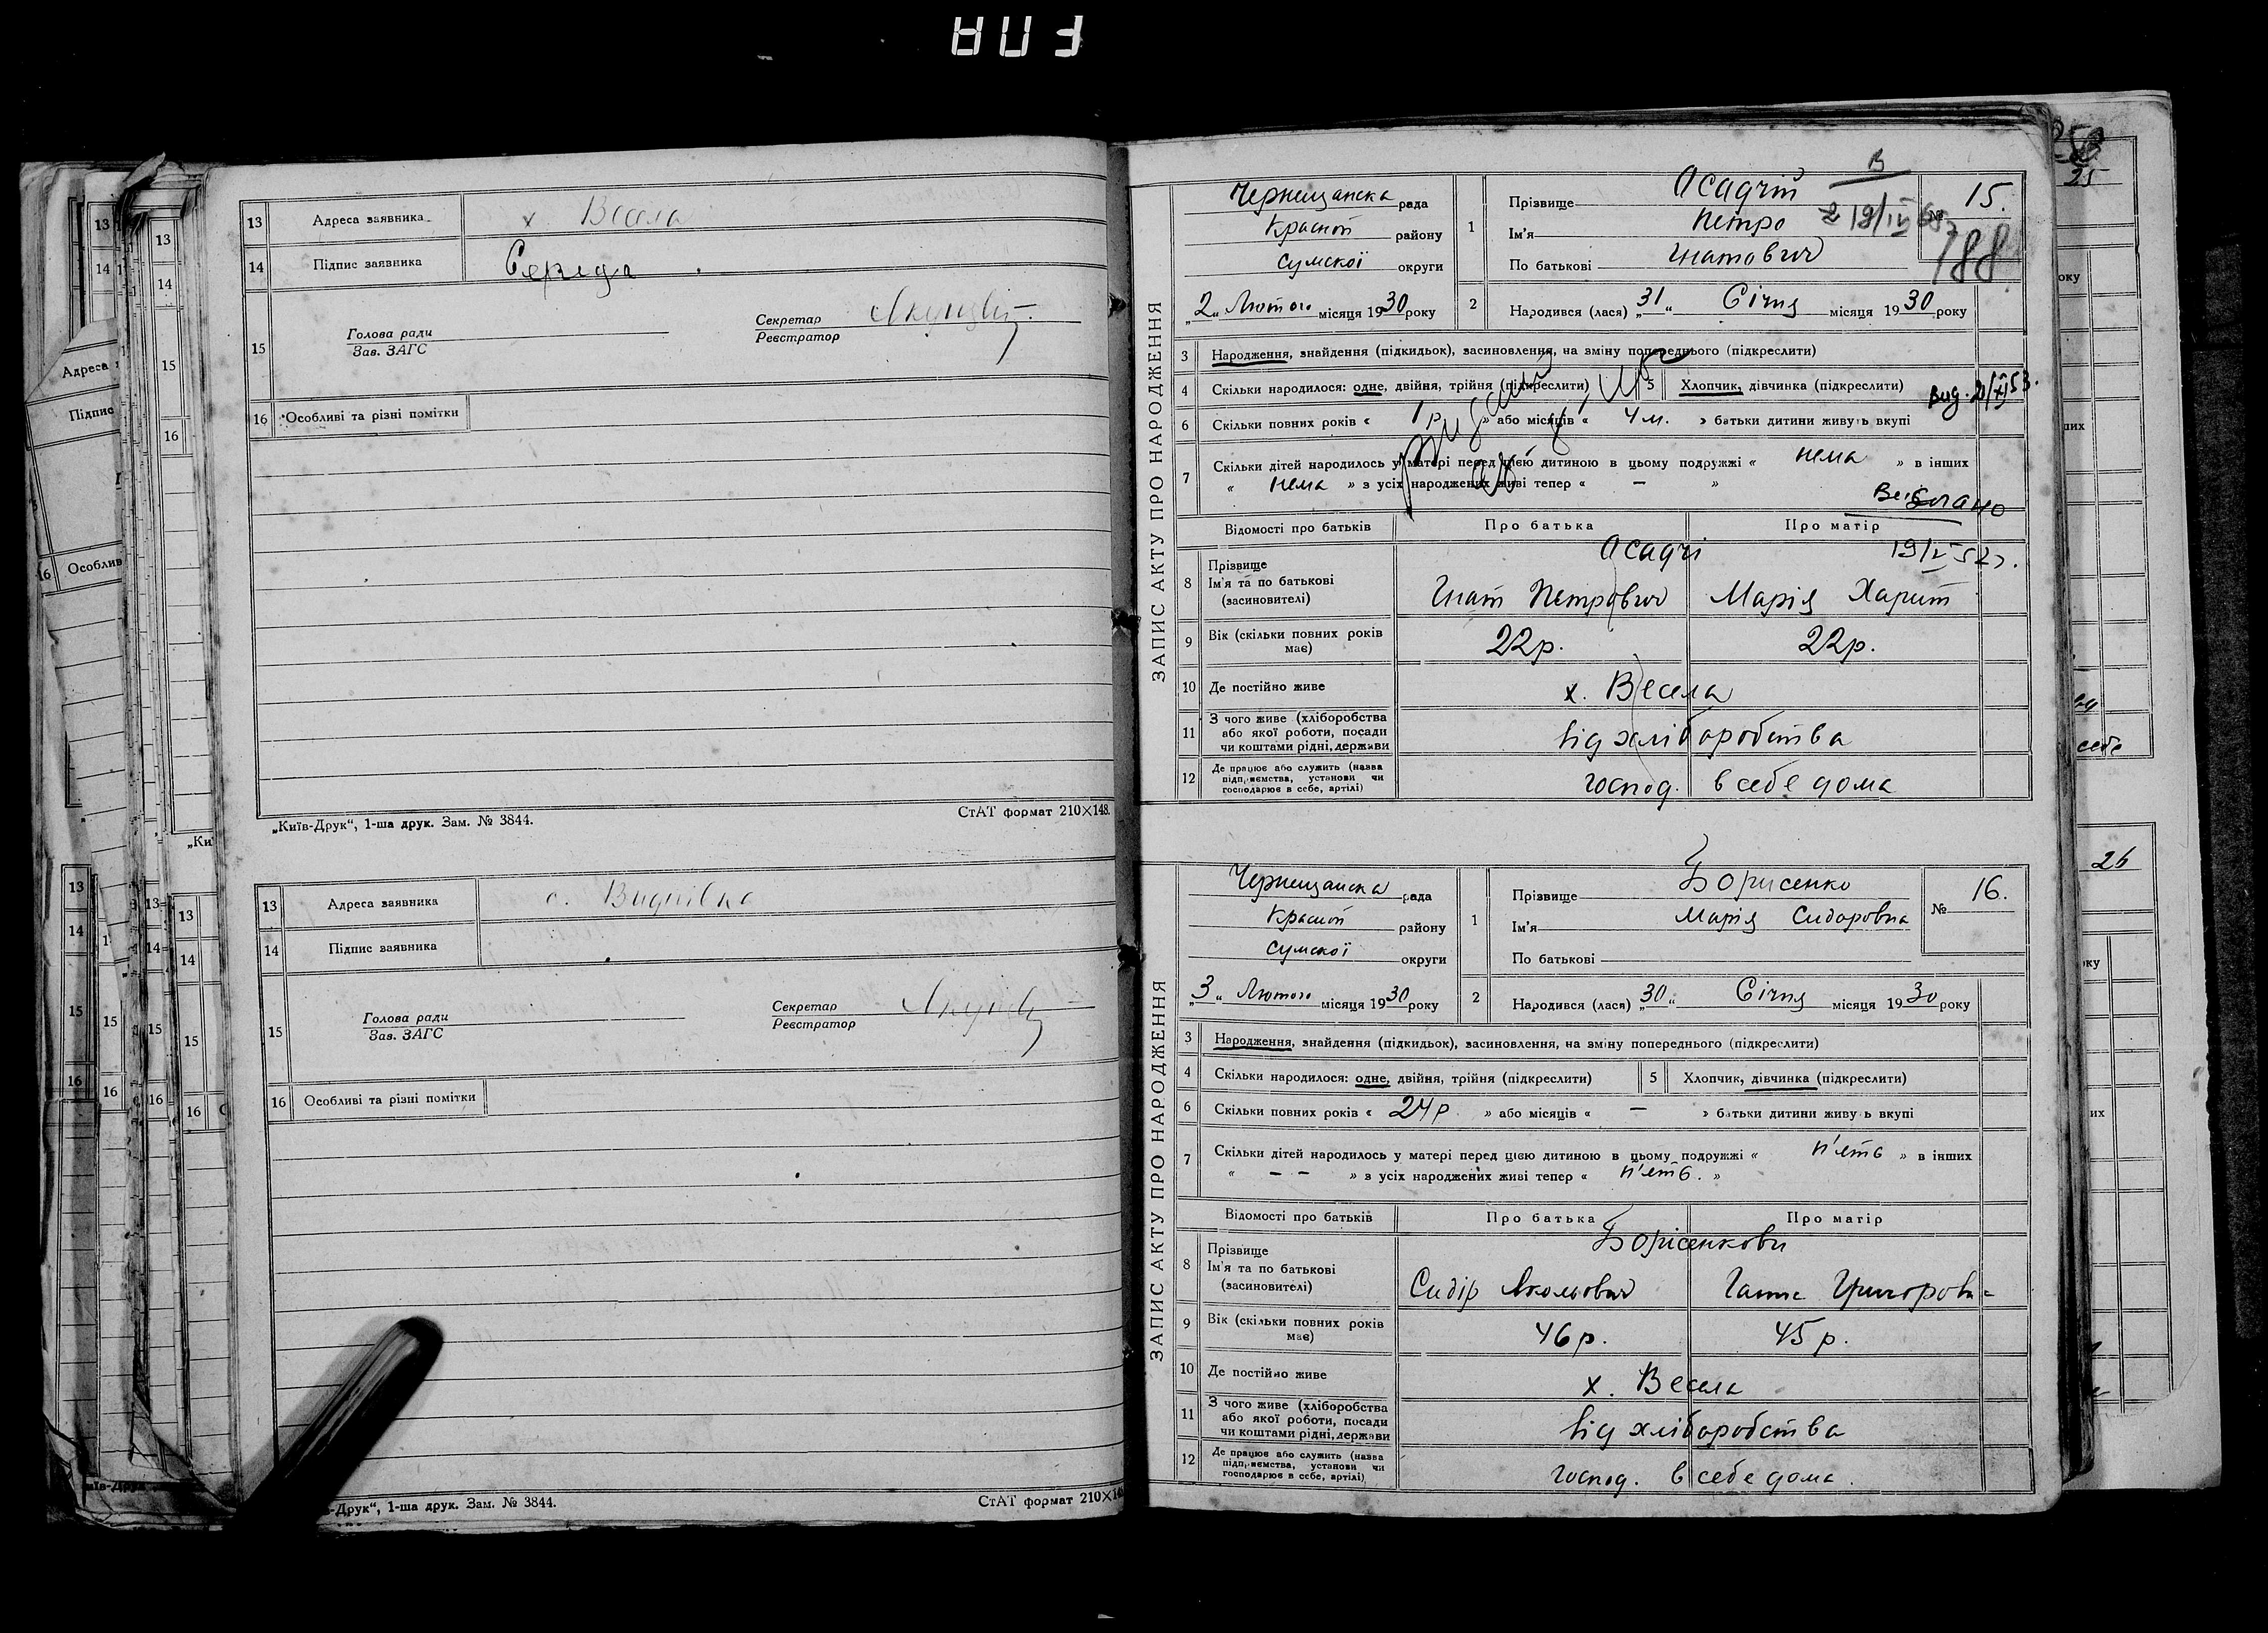 13 Адреса заявника х Весела
14 Підпис заявника Середа
15 Голова ради
Зав. ЗАГС
Секретар
Реєстратор
16 Особливі та різні помітки
„Київ-Друк“, 1-ша друк. Зам. № 3844. СтАТ формат 210×148.
13 Адреса заявника с.
14 Підпис заявника
15 Голова ради
Зав. ЗАГС
Секретар
Реєстратор
16 Особливі та різні помітки
-Друк“, 1-ша друк. Зам. № 3844. СтАТ формат 210×14
ЗАПИС АКТУ ПРО НАРОДЖЕННЯ
Чернещанска рада
Красноп району
Сумскої округи
„2“ Лютого місяця 1930 року
1 Прізвище Осадчій
Ім'я Петро
По батькові Гнатович
№ 15.
188
2 Народився (лася) „31“ Січня місяця 1930 року
3 Народження, знайдення (підкидьок), засиновлення, на зміну попереднього (підкреслити)
4 Скільки народилося: одне, двійня, трійня (підкреслити) 5 Хлопчик, дівчинка (підкреслити)
Вид. 21/XI 53.
6 Скільки повних років « 1 р » або місяців « 4 м. » батьки дитини живуть вкупі
7 Скільки дітей народилось у матері перед цією дитиною в цьому подружжі « нема » в інших
« нема » з усіх народжених живі тепер « — »
Відомості про батьків Про батька Про матір
8 Прізвище
Ім'я та по батькові
(засиновителі)
Осадчі
Гнат Петрович Марія Харит
9 Вік (скільки повних років має) 22р. 22р.
10 Де постійно живе х. Весела
11 З чого живе (хліборобства
або якої роботи, посади
чи коштами рідні, держави
від хліборобства
12 Де працює або служить (назва
підприємства, установи чи
господарює в себе, артілі)
господ. в себе дома
ЗАПИС АКТУ ПРО НАРОДЖЕННЯ
Чернещанска рада
Красноп району
Сумскої округи
„3“ Лютого місяця 1930 року
1 Прізвище Борисенко
Ім'я Марія Сидоровна
По батькові
№ 16.
2 Народився (лася) „30“ Січня місяця 1930 року
3 Народження, знайдення (підкидьок), засиновлення, на зміну попереднього (підкреслити)
4 Скільки народилося: одне, двійня, трійня (підкреслити) 5 Хлопчик, дівчинка (підкреслити)
6 Скільки повних років « 24р » або місяців « — » батьки дитини живуть вкупі
7 Скільки дітей народилось у матері перед цією дитиною в цьому подружжі « п'еть » в інших
« – – » з усіх народжених живі тепер « п'еть. »
Відомості про батьків Про батька Про матір
8 Прізвище
Ім'я та по батькові
(засиновителі)
Борісенкови
Сидір Якимович Ганна Григоровна
9 Вік (скільки повних років має) 46р. 45р.
10 Де постійно живе х. Весела
11 З чого живе (хліборобства
або якої роботи, посади
чи коштами рідні, держави
від хліборобства
12 Де працює або служить (назва
підприємства, установи чи
господарює в себе, артілі)
господ. в себе дома.